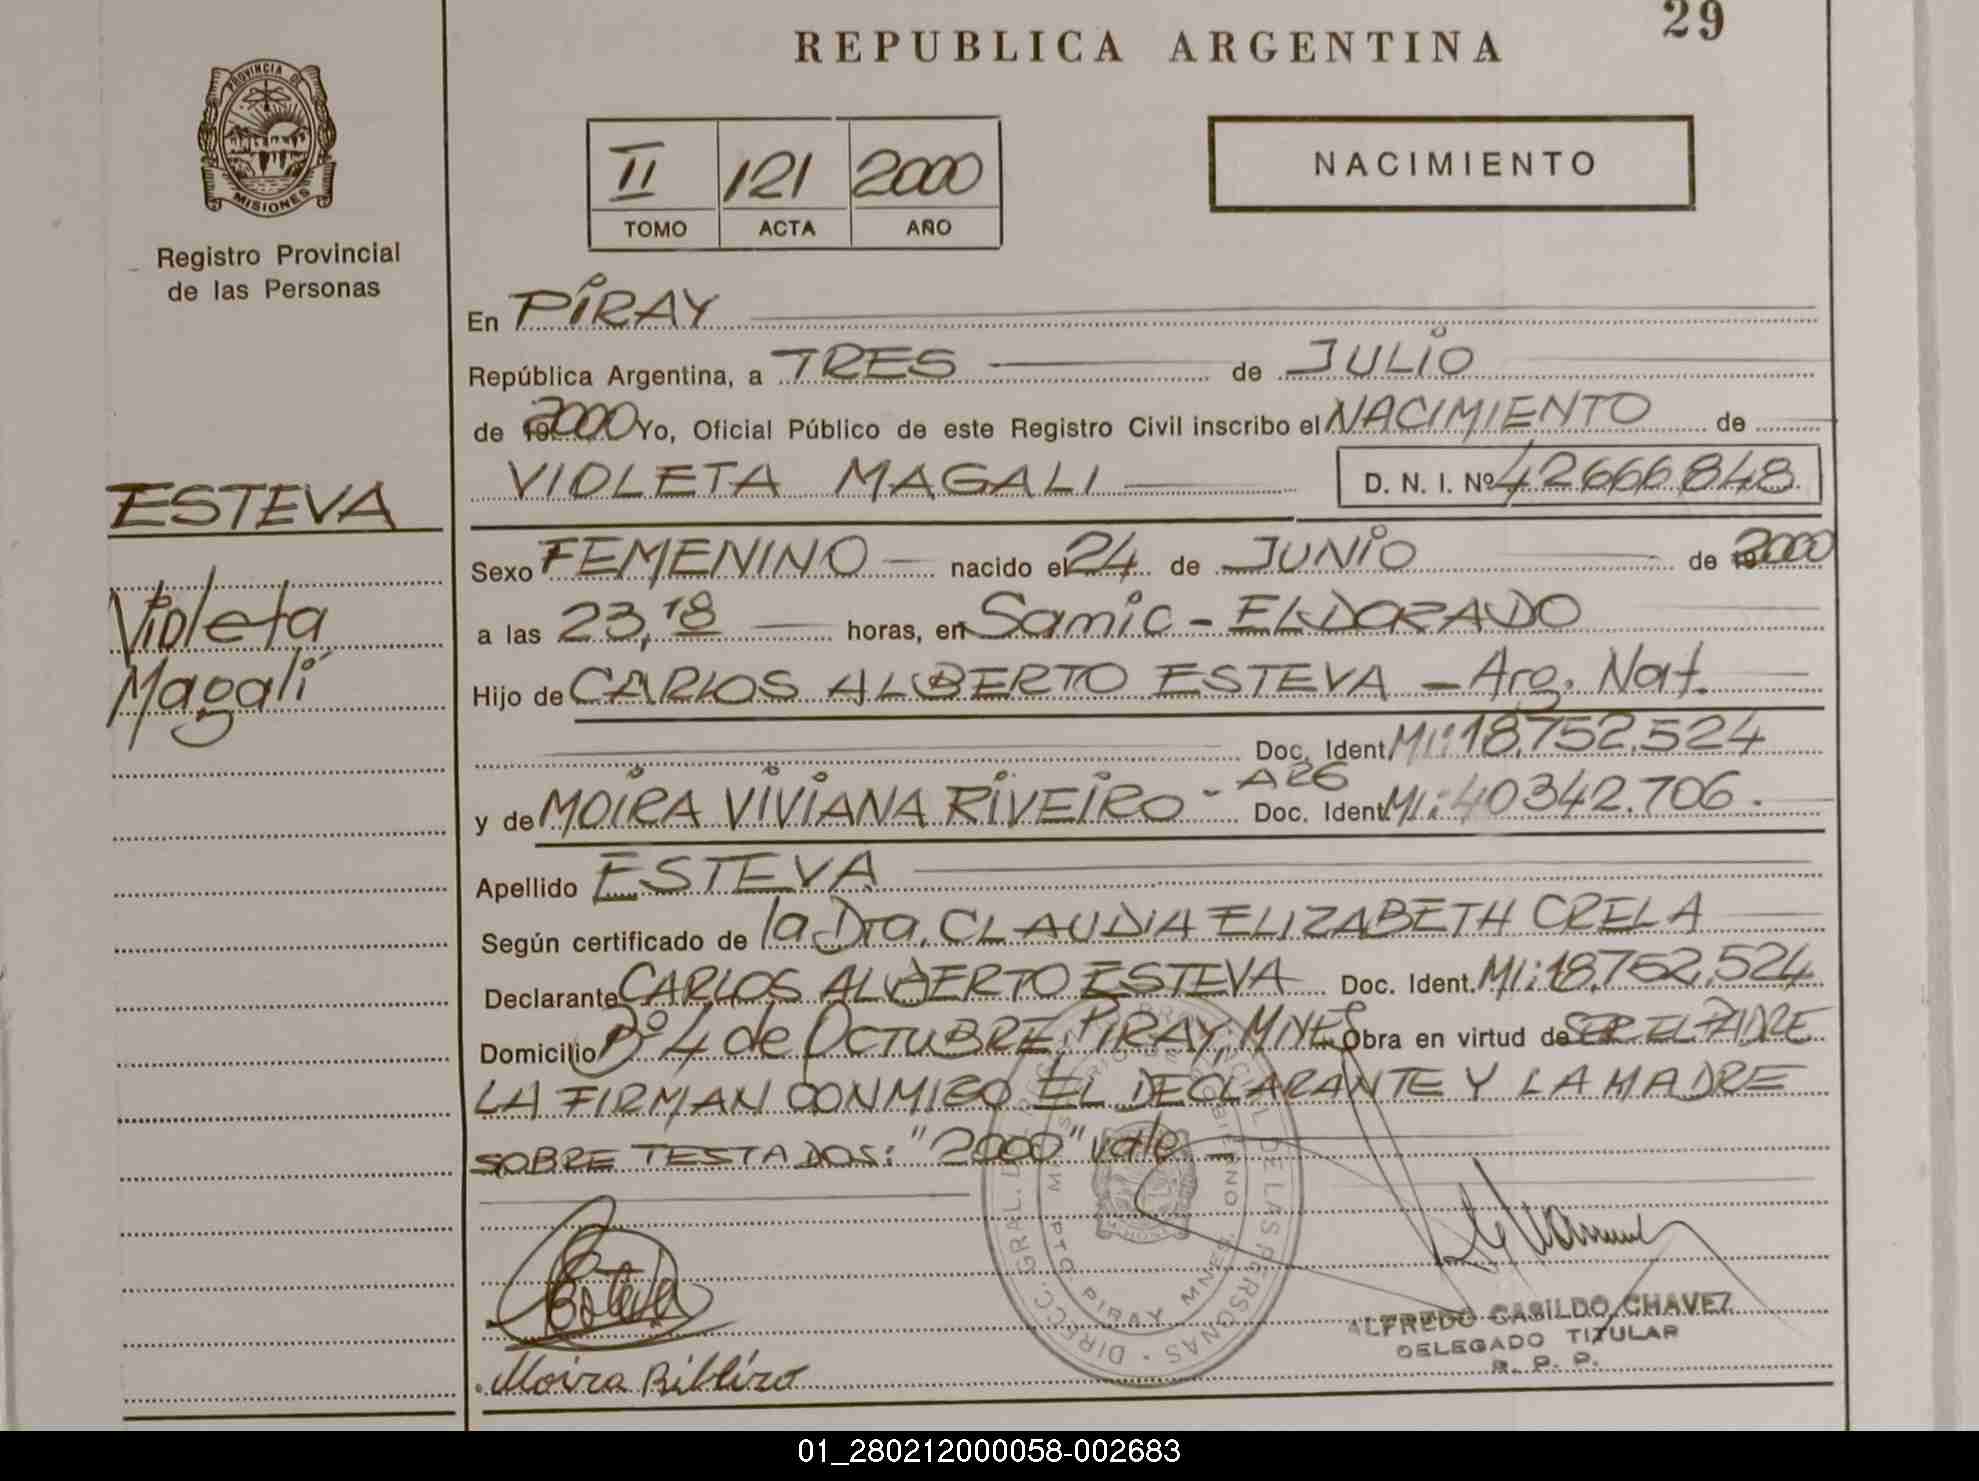 REPUBLICA ARGENTINA
29
PROVINCIA DE
MISIONES
Registro Provincial
de las Personas
II 121 2000
TOMO ACTA AÑO
NACIMIENTO
En PIRAY
República Argentina, a TRES de JULIO
de 2000 Yo, Oficial Público de este Registro Civil inscribo el NACIMIENTO de
VIOLETA MAGALI D. N. I. Nº 42666848
ESTEVA
Violeta
Magalí
Sexo FEMENINO nacido el 24 de JUNIO de 2000
a las 23,18 horas, en Samic - ELDORADO
Hijo de CARLOS ALBERTO ESTEVA - Arg. Nat.
Doc. Ident. MI: 18.752.524
y de MOIRA VIVIANA RIVEIRO - ARG Doc. Ident. MI: 40342.706.
Apellido ESTEVA
Según certificado de la Dra. CLAUDIA ELIZABETH CRELA
Declarante CARLOS ALBERTO ESTEVA Doc. Ident. MI: 18.752.524
Domicilio Bº 4 de OCTUBRE, PIRAY, MNES Obra en virtud de SER EL PADRE
LA FIRMAN CONMIGO EL DECLARANTE Y LA MADRE
SOBRE TESTADOS: "2000" vale -
DIRECC. GRAL. DE LAS PERSONAS
PIRAY MNES.
Esteva
Moira
ALFREDO CASILDO CHAVEZ
DELEGADO TITULAR
R. P. P.
01_280212000058-002683